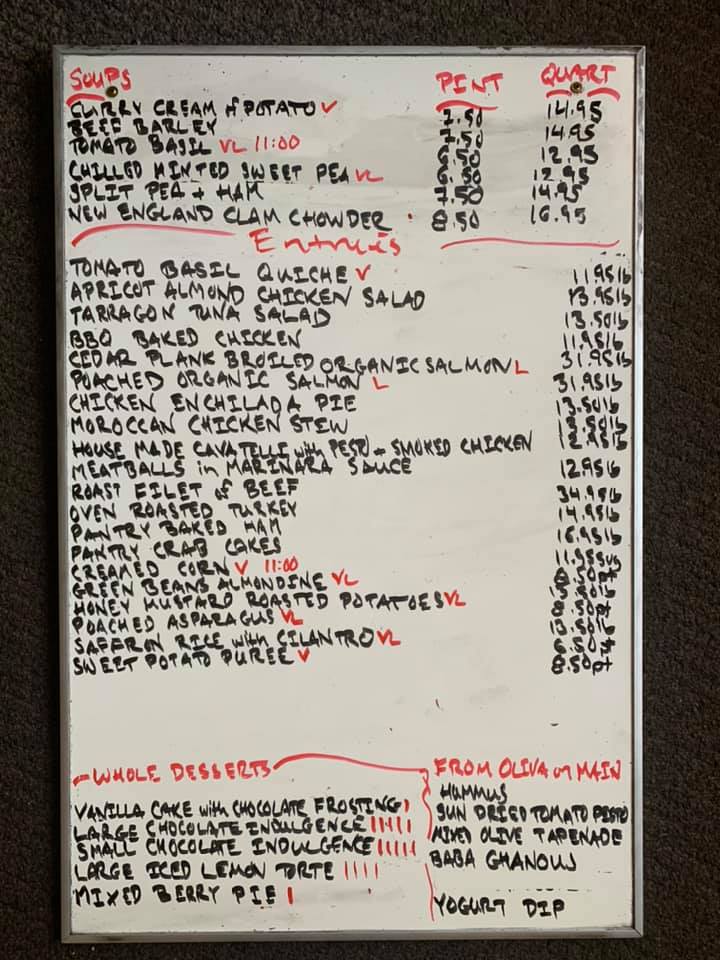 SOUPS PINT QUART
CURRY CREAM of POTATO V 7.50 14.95
BEEF BARLEY 7.50 14.95
TOMATO BASIL VL 11:00 6.50 12.95
CHILLED MINTED SWEET PEA VL 6.50 12.95
SPLIT PEA + HAM 7.50 14.95
NEW ENGLAND CLAM CHOWDER 8.50 16.95
Entrees
TOMATO BASIL QUICHE V 11.95lb
APRICOT ALMOND CHICKEN SALAD 13.95lb
TARRAGON TUNA SALAD 13.50lb
BBQ BAKED CHICKEN 11.95lb
CEDAR PLANK BROILED ORGANIC SALMON L 31.95lb
POACHED ORGANIC SALMON L 31.95lb
CHICKEN ENCHILADA PIE 13.50lb
MOROCCAN CHICKEN STEW 13.50lb
HOUSE MADE CAVATELLI with PESTO + SMOKED CHICKEN 12.95lb
MEATBALLS in MARINARA SAUCE 12.95lb
ROAST FILET of BEEF 34.95lb
OVEN ROASTED TURKEY 14.95lb
PANTRY BAKED HAM 16.95lb
PANTRY CRAB CAKES 11.95
CREAMED CORN V 11:00 8.50pt
GREEN BEANS ALMONDINE VL 13.50lb
HONEY MUSTARD ROASTED POTATOES VL 8.50pt
POACHED ASPARAGUS VL 13.50lb
SAFFRON RICE with CILANTRO VL 6.50pt
SWEET POTATO PUREE V 8.50pt
WHOLE DESSERTS
VANILLA CAKE with CHOCOLATE FROSTING
LARGE CHOCOLATE INDULGENCE
SMALL CHOCOLATE INDULGENCE
LARGE ICED LEMON TORTE
MIXED BERRY PIE
FROM OLIVA on MAIN
HUMMUS
SUN DRIED TOMATO PESTO
MIXED OLIVE TAPENADE
BABA GHANOUJ
YOGURT DIP